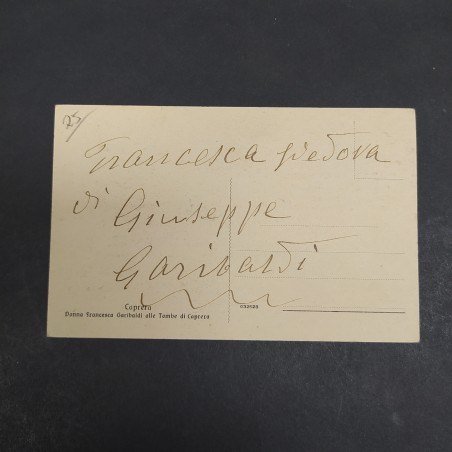 25/
Francesca Vedova
di Giuseppe
Garibaldi
Caprera
Donna Francesca Garibaldi alle Tombe di Caprera